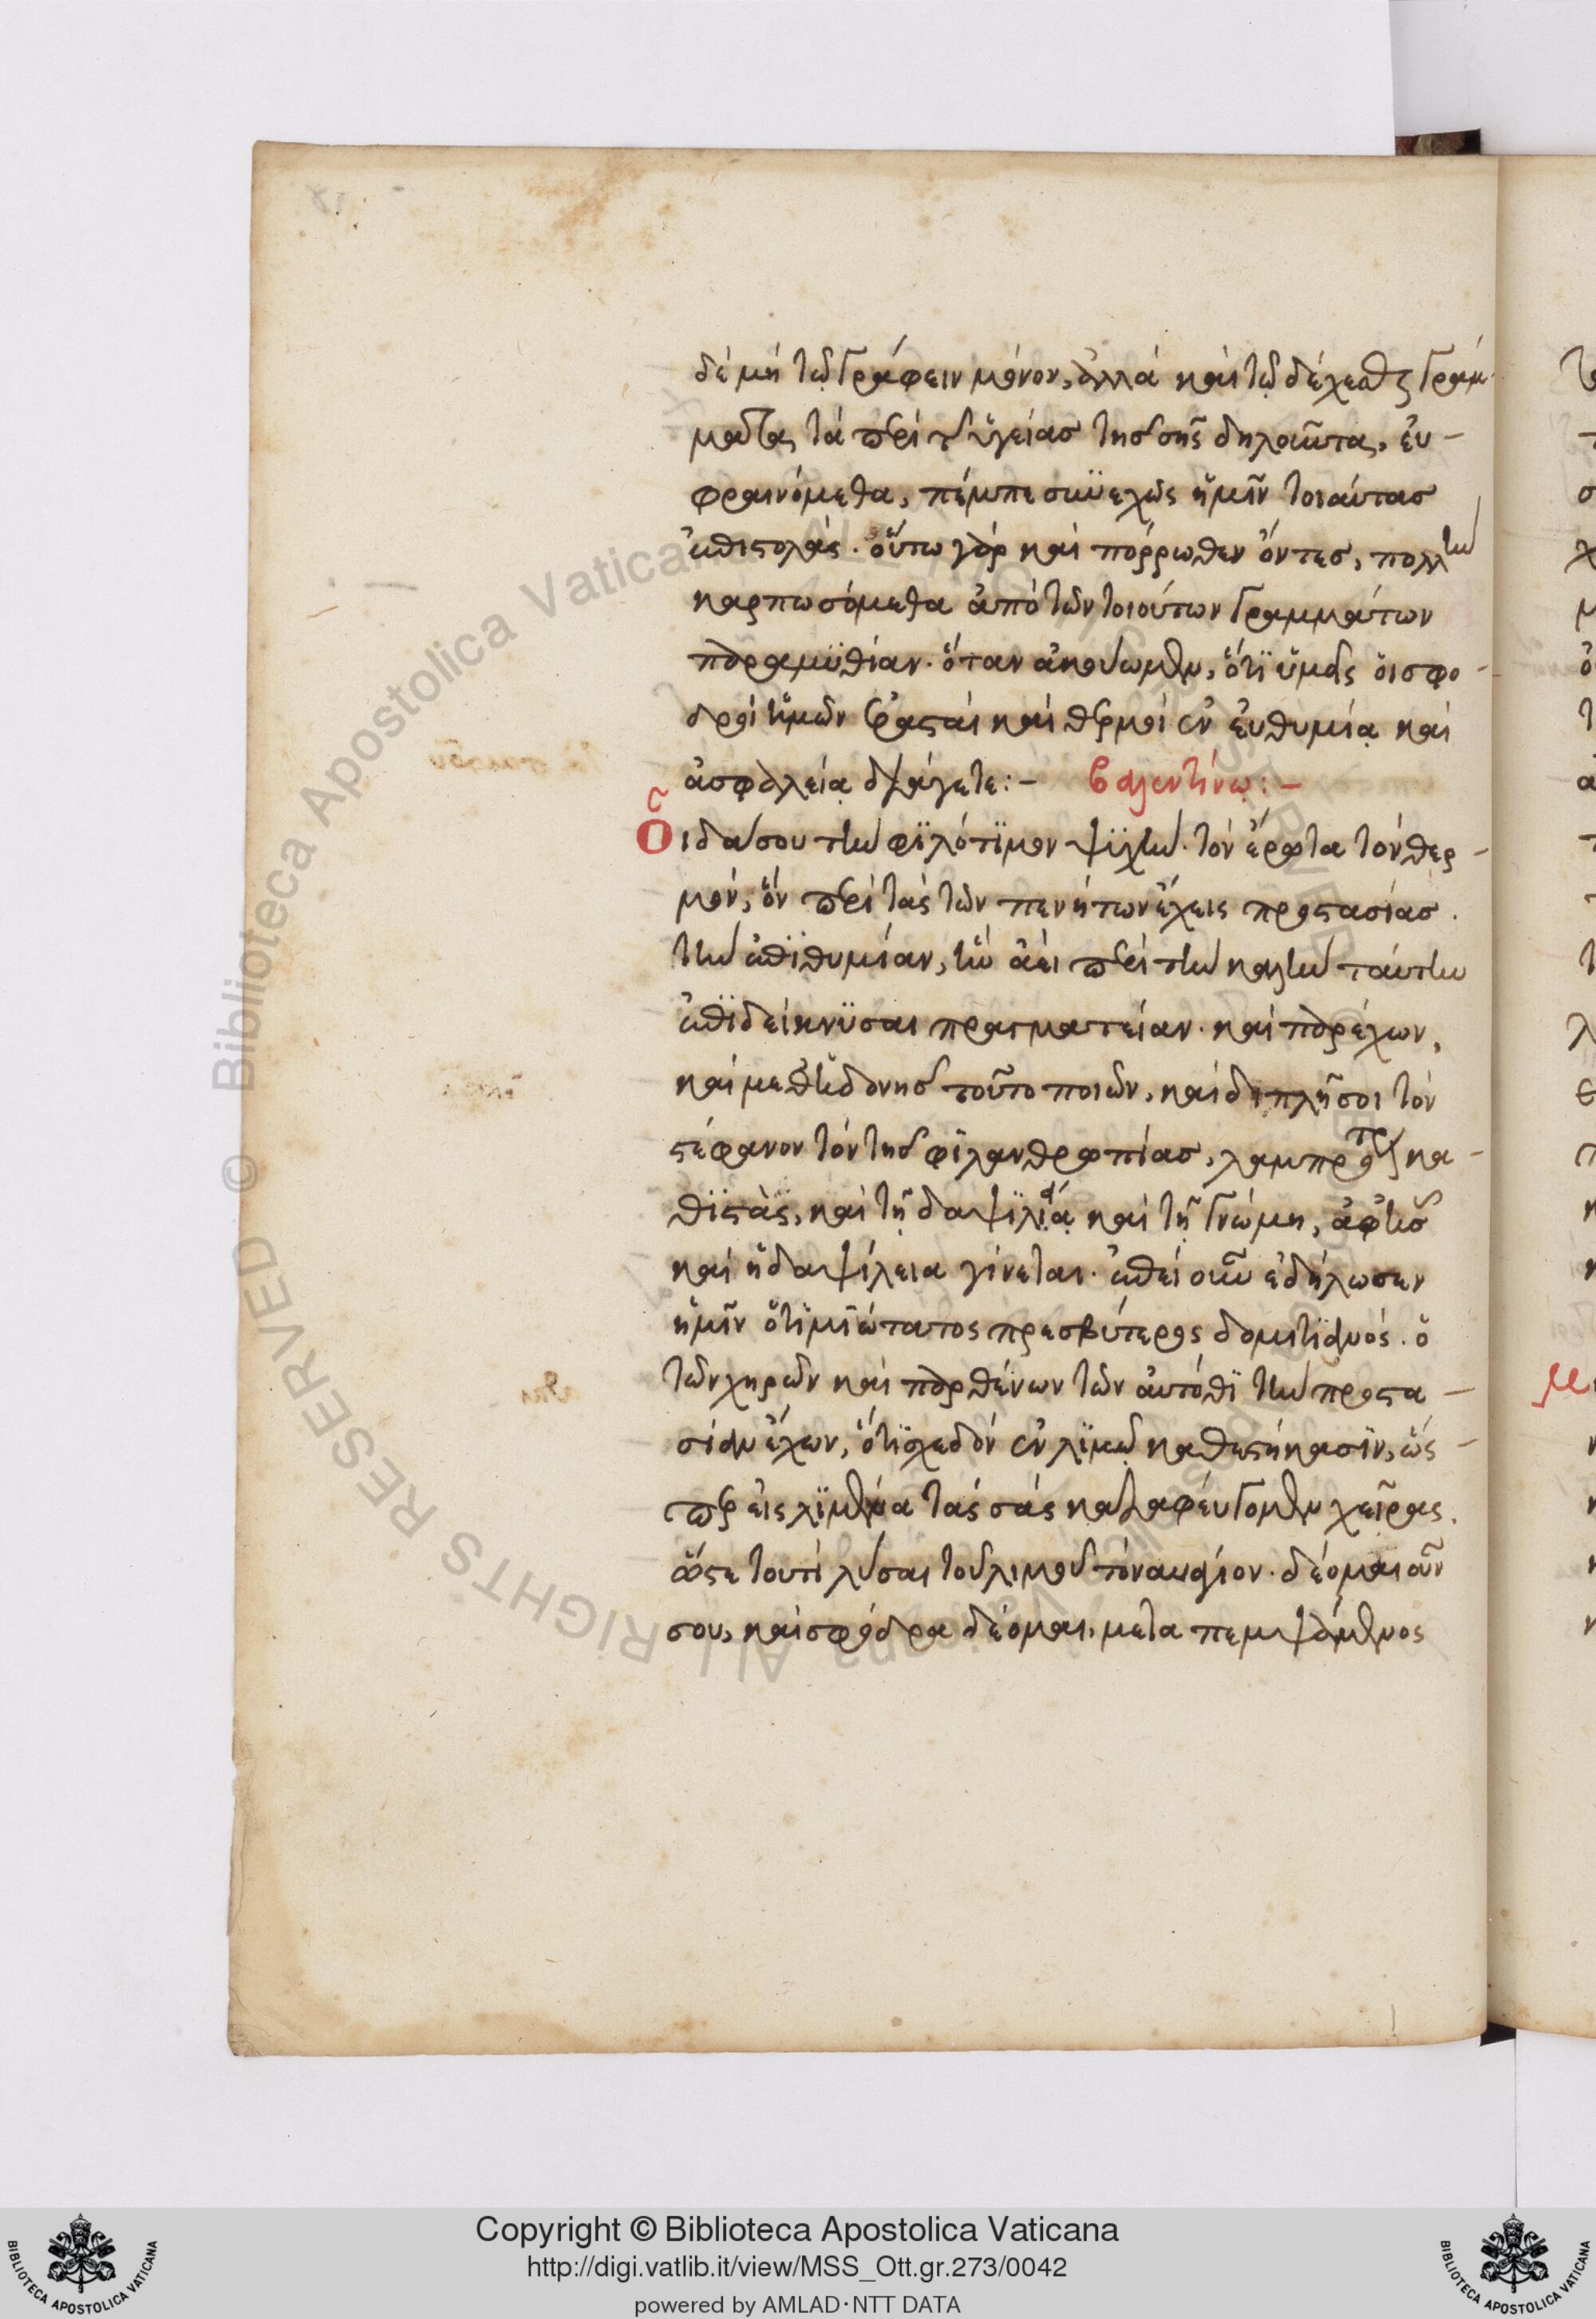 δὲ μὴ τῷ γράφειν μόνον, ἀλλὰ καὶ τῷ δέχεσθαι γράμ
ματα, τὰ περὶ τῆς ὑγείας τῆς σῆς δηλοῦντα, ἐυ-
φραινόμεθα, πέμπε συνεχῶς ἡμῖν τοιάυτας
ἐπιστολάς. ὅυτω γὰρ καὶ πόρρωθεν ὄντες, πολλὴν
καρπωσόμεθα ἀπὸ τῶν τοιούτων γραμμάτων
παραμϋθίαν. ὅταν ἀκούωμεν, ὅτϊ ὑμᾶς ὁι σφο-
δροὶ ἡμῶν ἐρασταὶ καὶ θερμοὶ ἐν ἐυθυμία καὶ
ἀσφαλεία διάγετε:- Βαλεντίνω:-
Οἶδα σου τὴν φϊλότϊμον ψϋχὴν. τὸν ἔρωτα τὸν θερ-
μὸν, ὃν περὶ τὰς τῶν πενήτων ἔχεις προστασίας.
τὴν ἐπϊθυμίαν, ἣν ἀεὶ περὶ τὴν καλὴν τάυτην
ἐπϊδείκνϋσαι πραγματείαν. καὶ παρέχων,
καὶ μεθ ἡδονῆς τοῦτο ποιῶν, καὶ διπλῆ σοι τὸν
στέφανον τὸν τῆς φϊλανθρωπίας, λαμπρότερον κα-
θϊστὰς, καὶ τῆ δαψϊλεία καὶ τῆ γνώμη, ἀφ ἧς
καὶ ἡ δαψίλεια γίνεται. ἐπεὶ οὖν ἐδήλωσεν
ἡμῖν ὁ τϊμϊώτατος πρεσβύτερος δομετϊανός. ὁ
τῶν χηρῶν καὶ παρθένων τῶν ἀυτόθϊ τὴν προστα-
σίαν ἔχων, ὅτϊ σχεδὸν ἐν λϊμῷ καθεστήκασϊν, ὥς-
περ εἰς λϊμένα τὰς σὰς καταφέυγομεν χεῖρας.
ὥστε τουτὶ λύσαι τοῦ λιμοῦ τὸν αυάγιον. δέομαι οὖν
σου, καὶ σφόδρα δέομαι, μεταπεμψάμενος
Copyright © Biblioteca Apostolica Vaticana
http://digi.vatlib.it/view/MSS_Ott.gr.273/0042
powered by AMLAD·NTT DATA